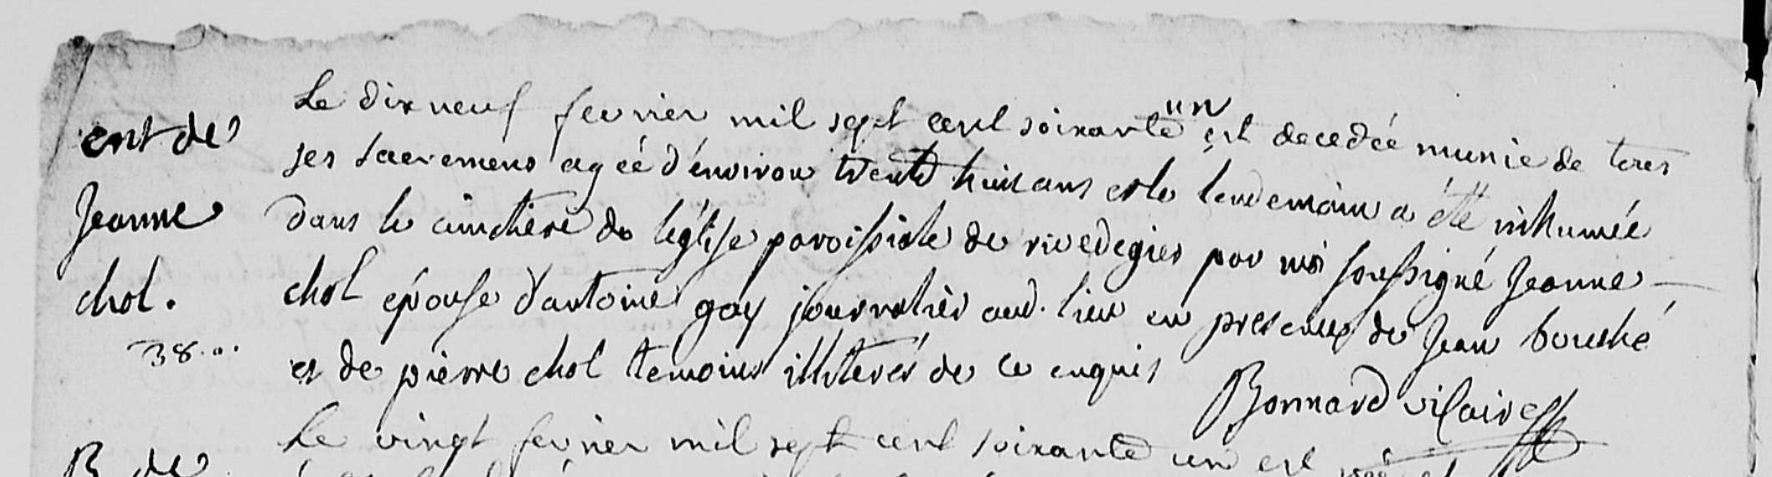 ent de
Jeanne
chol.
38 a.
Le dix neuf fevrier mil sept cent soixante un est decedée munie de tous
ses sacremens agéé d'environ trente huit ans et le lendemain a été inhumée
dans le cimetiere de l'église paroissiale de rivedegier par moi soussigné Jeanne
chol épouse d'antoine gay journalier aud. lieu en presence de Jean bouché
et de pierre chol temoins illiterés de ce enquis
Bonnard vicaire
Le vingt fevrier mil sept cent soixante un est
B de